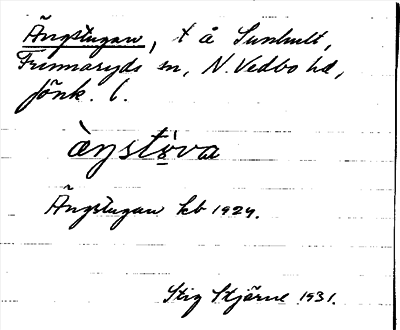 Ängstugan, t å Sunhult,
Frinnaryds sn, N. Vedbo hd,
Jönk. l.
àŋstò̤va
Ängstugan kb 1924.
Stig Stjärne 1931.